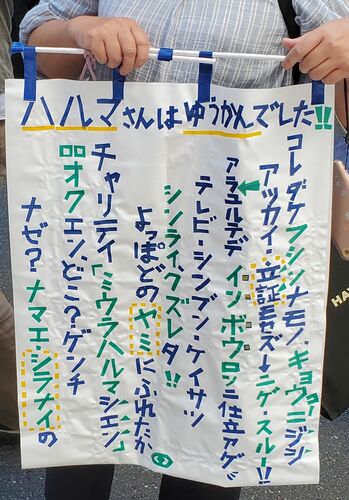 ハルマさんはゆうかんでした!!
コレダケフシンナモノ、
アツカイ・立証モセズ→ニゲ・スルー!!
アラユルテデ インボウロンニ仕立アゲ
テレビ・シンブン・ケイサツ
シンライ、クズレタ!!
よっぽどのヤミにふれたか
チャリティ「ミウラハルマシエン」
□□オクエン、どこ?ゲンチ
ナゼ?ナマエシラナイの